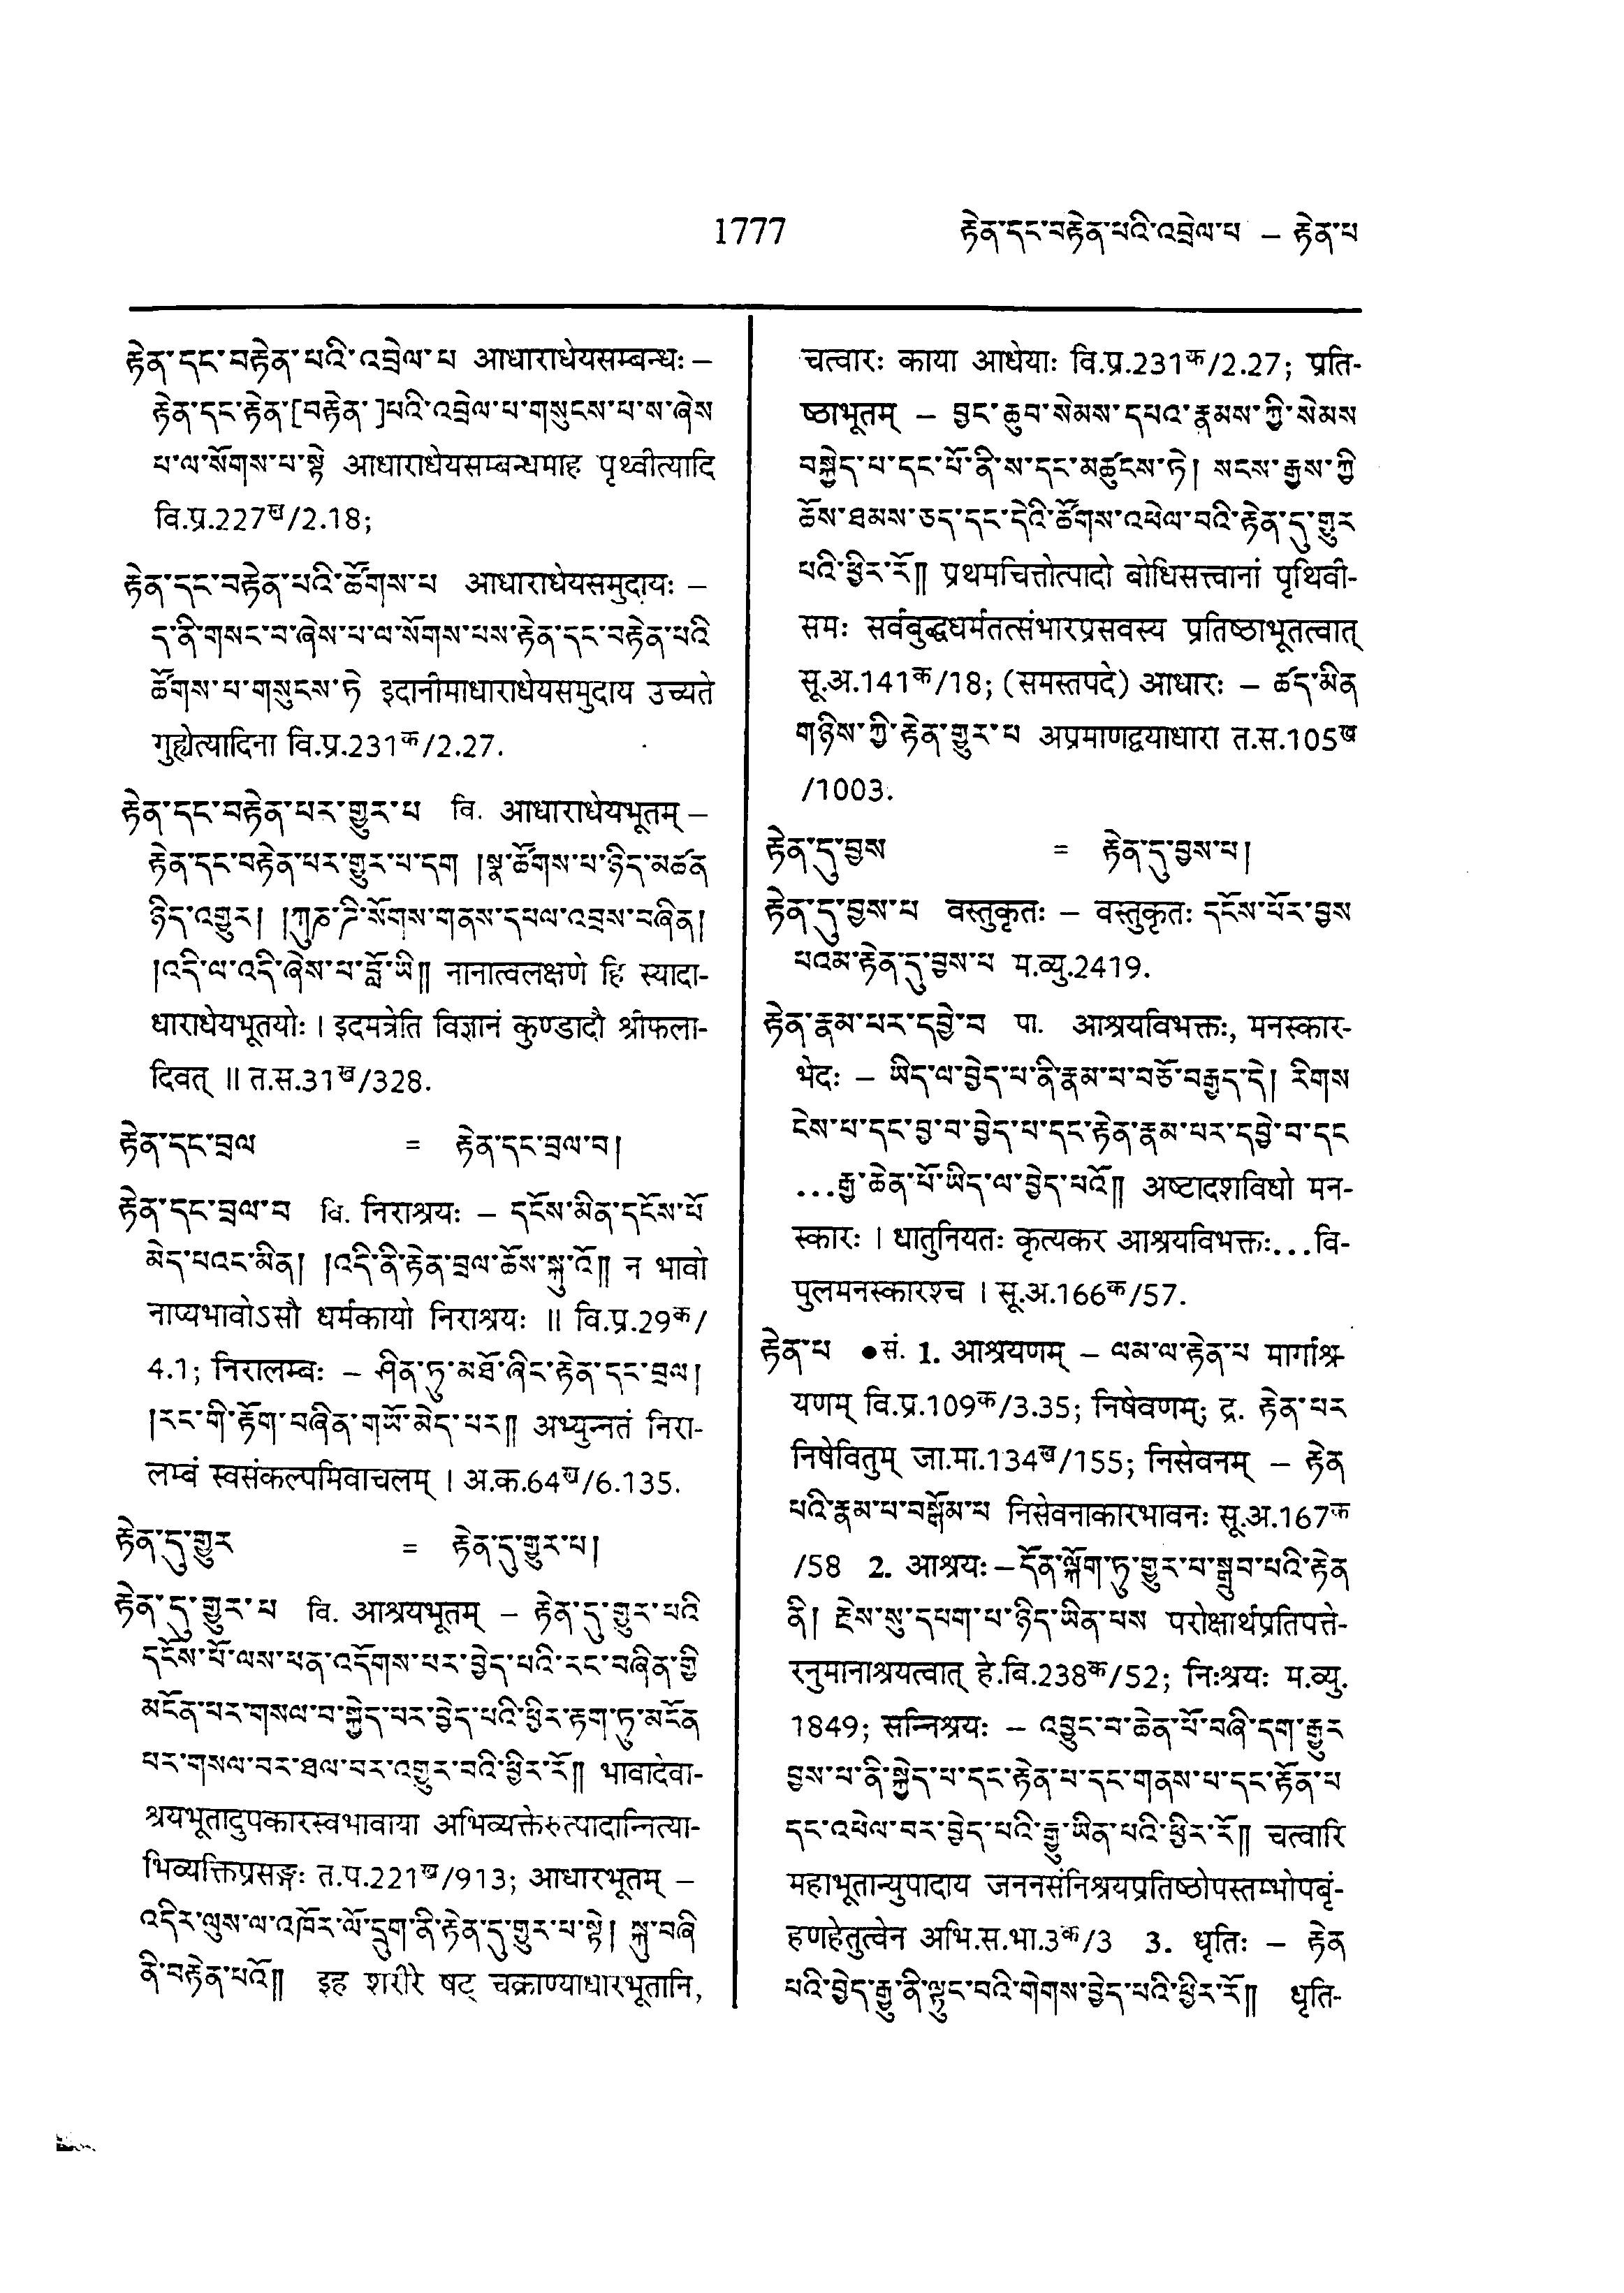 1777
རྟེན་དང་བརྟེན་པའི་འབྲེལ་པ – རྟེན་པ
རྟེན་དང་བརྟེན་པའི་འབྲེལ་པ आधाराधेयसम्बन्धः –
རྟེན་དང་རྟེན་[བརྟེན་]པའི་འབྲེལ་པ་གསུངས་པ་ས་ཞེས
པ་ལ་སོགས་པ་སྟེ आधाराधेयसम्बन्धमाह पृथ्वीत्यादि
वि.प्र.227ख/2.18;
རྟེན་དང་བརྟེན་པའི་ཚོགས་པ आधाराधेयसमुदायः –
ད་ནི་གསང་བ་ཞེས་པ་ལ་སོགས་པས་རྟེན་དང་བརྟེན་པའི
ཚོགས་པ་གསུངས་ཏེ इदानीमाधाराधेयसमुदाय उच्यते
गुह्येत्यादिना वि.प्र.231क/2.27.
རྟེན་དང་བརྟེན་པར་གྱུར་པ वि. आधाराधेयभूतम् –
རྟེན་དང་བརྟེན་པར་གྱུར་པ་དག །སྣ་ཚོགས་པ་ཉིད་མཚན
ཉིད་འགྱུར། །ཀུཎ་ཌི་སོགས་གནས་དཔལ་འབྲས་བཞིན།
།འདི་ལ་འདི་ཞེས་པ་བློ་ཡི༎ नानात्वलक्षणे हि स्यादा-
धाराधेयभूतयोः । इदमत्रेति विज्ञानं कुण्डादौ श्रीफला-
दिवत् ॥ त.स.31ख/328.
རྟེན་དང་བྲལ = རྟེན་དང་བྲལ་བ།
རྟེན་དང་བྲལ་བ वि. निराश्रयः – དངོས་མིན་དངོས་པོ
མེད་པའང་མིན། །འདི་ནི་རྟེན་བྲལ་ཆོས་སྐུ་འོ༎ न भावो
नाप्यभावोऽसौ धर्मकायो निराश्रयः ॥ वि.प्र.29क/
4.1; निरालम्बः – ཤིན་ཏུ་མཐོ་ཞིང་རྟེན་དང་བྲལ།
།རང་གི་རྟོག་བཞིན་གཡོ་མེད་པར༎ अभ्युन्नतं निरा-
लम्बं स्वसंकल्पमिवाचलम् । अ.क.64ख/6.135.
རྟེན་དུ་གྱུར = རྟེན་དུ་གྱུར་པ།
རྟེན་དུ་གྱུར་པ वि. आश्रयभूतम् – རྟེན་དུ་གྱུར་པའི
དངོས་པོ་ལས་ཕན་འདོགས་པར་བྱེད་པའི་རང་བཞིན་གྱི
མངོན་པར་གསལ་བ་སྐྱེད་པར་བྱེད་པའི་ཕྱིར་རྟག་ཏུ་མངོན
པར་གསལ་བར་ཐལ་བར་འགྱུར་བའི་ཕྱིར་རོ༎ भावादेवा-
श्रयभूतादुपकारस्वभावाया अभिव्यक्तेरुत्पादान्नित्या-
भिव्यक्तिप्रसङ्गः त.प.221ख/913; आधारभूतम् –
འདིར་ལུས་ལ་འཁོར་ལོ་དྲུག་ནི་རྟེན་དུ་གྱུར་པ་སྟེ། སྐུ་བཞི
ནི་བརྟེན་པའོ༎ इह शरीरे षट् चक्राण्याधारभूतानि,
चत्वारः काया आधेयाः वि.प्र.231क/2.27; प्रति-
ष्ठाभूतम् – བྱང་ཆུབ་སེམས་དཔའ་རྣམས་ཀྱི་སེམས
བསྐྱེད་པ་དང་པོ་ནི་ས་དང་མཚུངས་ཏེ། སངས་རྒྱས་ཀྱི
ཆོས་ཐམས་ཅད་དང་དེའི་ཚོགས་འཕེལ་བའི་རྟེན་དུ་གྱུར
པའི་ཕྱིར་རོ༎ प्रथमचित्तोत्पादो बोधिसत्त्वानां पृथिवी-
समः सर्वबुद्धधर्मतत्संभारप्रसवस्य प्रतिष्ठाभूतत्वात्
सू.अ.141क/18; (समस्तपदे) आधारः – ཚད་མིན
གཉིས་ཀྱི་རྟེན་གྱུར་པ अप्रमाणद्वयाधारा त.स.105ख
/1003.
རྟེན་དུ་བྱས = རྟེན་དུ་བྱས་པ།
རྟེན་དུ་བྱས་པ वस्तुकृतः – वस्तुकृतः དངོས་པོར་བྱས
པའམ་རྟེན་དུ་བྱས་པ म.व्यु.2419.
རྟེན་རྣམ་པར་དབྱེ་བ पा. आश्रयविभक्तः, मनस्कार-
भेदः – ཡིད་ལ་བྱེད་པ་ནི་རྣམ་པ་བཅོ་བརྒྱད་དེ། རིགས
ངེས་པ་དང་བྱ་བ་བྱེད་པ་དང་རྟེན་རྣམ་པར་དབྱེ་བ་དང
...རྒྱ་ཆེན་པོ་ཡིད་ལ་བྱེད་པའོ༎ अष्टादशविधो मन-
स्कारः । धातुनियतः कृत्यकर आश्रयविभक्तः...वि-
पुलमनस्कारश्च । सू.अ.166क/57.
རྟེན་པ ●सं. 1. आश्रयणम् – ལམ་ལ་རྟེན་པ मार्गाश्र-
यणम् वि.प्र.109क/3.35; निषेवणम्; द्र. རྟེན་པར
निषेवितुम् जा.मा.134ख/155; निसेवनम् – རྟེན
པའི་རྣམ་པ་བསྒོམ་པ निसेवनाकारभावनः सू.अ.167क
/58 2. आश्रयः – དོན་ལྐོག་ཏུ་གྱུར་པ་སྒྲུབ་པའི་རྟེན
ནི། རྗེས་སུ་དཔག་པ་ཉིད་ཡིན་པས परोक्षार्थप्रतिपत्ते-
रनुमानाश्रयत्वात् हे.बि.238क/52; निःश्रयः म.व्यु.
1849; सन्निश्रयः – འབྱུང་བ་ཆེན་པོ་བཞི་དག་རྒྱུར
བྱས་པ་ནི་སྐྱེད་པ་དང་རྟེན་པ་དང་གནས་པ་དང་རྟོན་པ
དང་འཕེལ་བར་བྱེད་པའི་རྒྱུ་ཡིན་པའི་ཕྱིར་རོ༎ चत्वारि
महाभूतान्युपादाय जननसंनिश्रयप्रतिष्ठोपस्तम्भोपबृं-
हणहेतुत्वेन अभि.स.भा.3क/3 3. धृतिः – རྟེན
པའི་བྱེད་རྒྱུ་ནི་ལྟུང་བའི་གེགས་བྱེད་པའི་ཕྱིར་རོ༎ धृति-